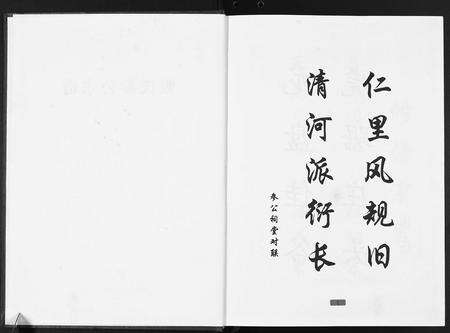 仁里风规旧
清河派衍长
公祠堂对联